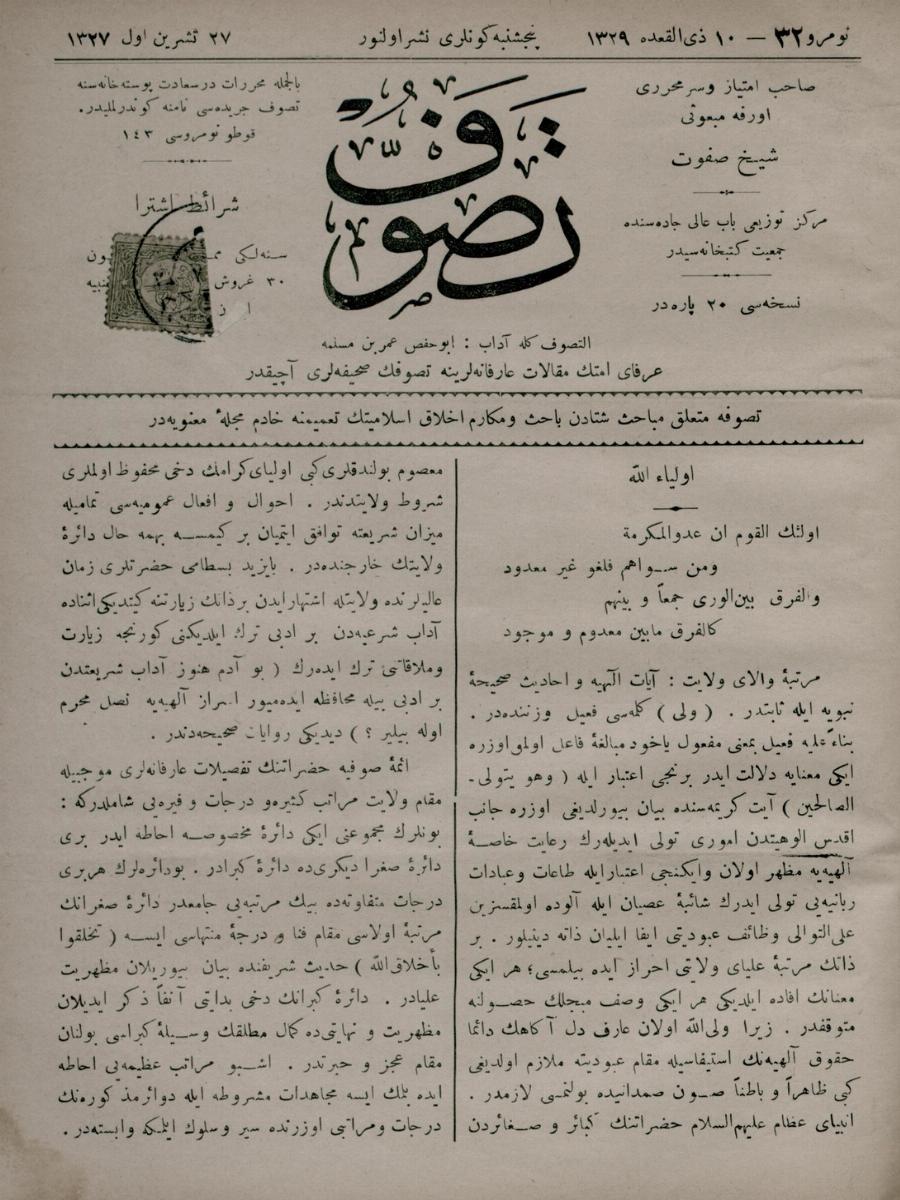 نومرو ٣٢ — ١٠ ذی القعده ١٣٢٩
پنجشنبه کونلری نشر اولنور
٢٧ تشرین اول ١٣٢٧
صاحب امتیاز وسر محرری
اورفه مبعوثی
شیخ صفوت
مرکز توزیعی باب عالی جاده‌سنده
جمعیت کتبخانه‌سیدر
نسخه‌سی ٢٠ پاره‌در
تصوف
بالجمله محررات درسعادت پوسته‌خانه‌سنه
تصوف جریده‌سی نامنه کوندرلملیدر.
قوطو نومروسی ١٤٣
شرائط اشترا
سنه‌لکی
٣٠ غروش
التصوف کله آداب : ابوحفص عمر بن مسلمه
عرفای امتك مقالات عارفانه‌لرینه تصوفك صحیفه‌لری آچیقدر
تصوفه متعلق مباحث شتادن باحث ومکارم اخلاق اسلامیتك تعمیمنه خادم مجلۀ معنویه‌در
اولیاء الله
اولئك القوم ان عدوالمکرمة
ومن سواهم فلغو غیر معدود
والفرق بین‌الوری جمعاً و بینهم
کالفرق مابین معدوم و موجود
مرتبۀ والای ولایت : آیات الهیه و احادیث صحیحۀ
نبویه ایله ثابتدر . ( ولی ) کلمه‌سی فعیل وزننده‌در .
بناءً علیه فعیل بمعنی مفعول یاخود مبالغۀ فاعل اولمق اوزره
ایکی معنایه دلالت ایدر برنجی اعتبار ایله ( وهو یتولی-
الصالحین ) آیت کریمه‌سنده بیان بیورلدیغی اوزره جانب
اقدس الوهیتدن اموری تولی ایدیله‌رك رعایت خاصۀ
الٓهیه‌یه مظهر اولان وایکنجی اعتبارایله طاعات وعبادات
ربانیه‌یی تولی ایدرك شائبۀ عصیان ایله آلوده اولمقسزین
علی‌التوالی وظائف عبودیتی ایفا ایلیان ذاته دینیلور . بر
ذاتك مرتبۀ علیای ولایتی احراز ایده بیلمسی؛ هر ایکی
معنانك افاده ایلدیکی هر ایکی وصف مبجلك حصولنه
متوقفدر . زیرا ولی‌الله اولان عارف دل آکاهك دائما
حقوق الٓهیه‌نك استیفاسیله مقام عبودیته ملازم اولدیغی
کبی ظاهراً و باطناً صون صمدانیده بولنمسی لازمدر .
انبیای عظام علیهم‌السلام حضراتنك کبائر و صغائردن
معصوم بولندقلری‌کبی اولیای‌کرامك دخی محفوظ اولملری
شروط ولایتدندر . احوال و افعال عمومیه‌سی تمامیله
میزان شریعته توافق ایتمیان بر کیمسه بهمه حال دائرۀ
ولایتك خارجنده‌در . بایزید بسطامی حضرتلری زمان
عالیلرنده ولایتله اشتهارایدن برذاتك زیارتنه کیتدیکی اثناده
آداب شرعیه‌دن بر ادبی ترك ایلدیکنی کورنجه زیارت
وملاقاتی ترك ایده‌رك ( بو آدم هنوز آداب شریعتدن
بر ادبی بیله محافظه ایده‌میور اسرار الٓهیه‌یه نصل محرم
اوله بیلیر ؟ ) دیدیکی روایات صحیحه‌دندر .
ائمۀ صوفیه حضراتنك تفصیلات عارفانه‌لری موجبیله
مقام ولایت مراتب کثیره‌و درجات و فیره‌یی شاملدرکه :
بونلرك مجموعنی ایکی دائرۀ مخصوصه احاطه ایدر بری
دائرۀ صغرا دیکری‌ده دائرۀ کبرادر . بودائره‌لرك هربری
درجات متفاوته‌ده بیك مرتبه‌یی جامعدر دائرۀ صغرانك
مرتبۀ اولاسی مقام فنا و درجۀ منتهاسی ایسه ( تخلقوا
بأخلاق‌الله ) حدیث شریفنده بیان بیوریلان مظهریت
علیادر . دائرۀ کبرانك دخی بدایتی آنفاً ذکر ایدیلان
مظهریت و نهایتی‌ده کمال مطلقك وسیلۀ کبراسی بولنان
مقام عجز و حیرتدر . اشبو مراتب عظیمه‌یی احاطه
ایده بلمك ایسه مجاهدات مشروطه ایله دوائرمذ کوره‌نك
درجات ومراتبی اوزرنده سیر وسلوك ایلمکه وابسته‌در .